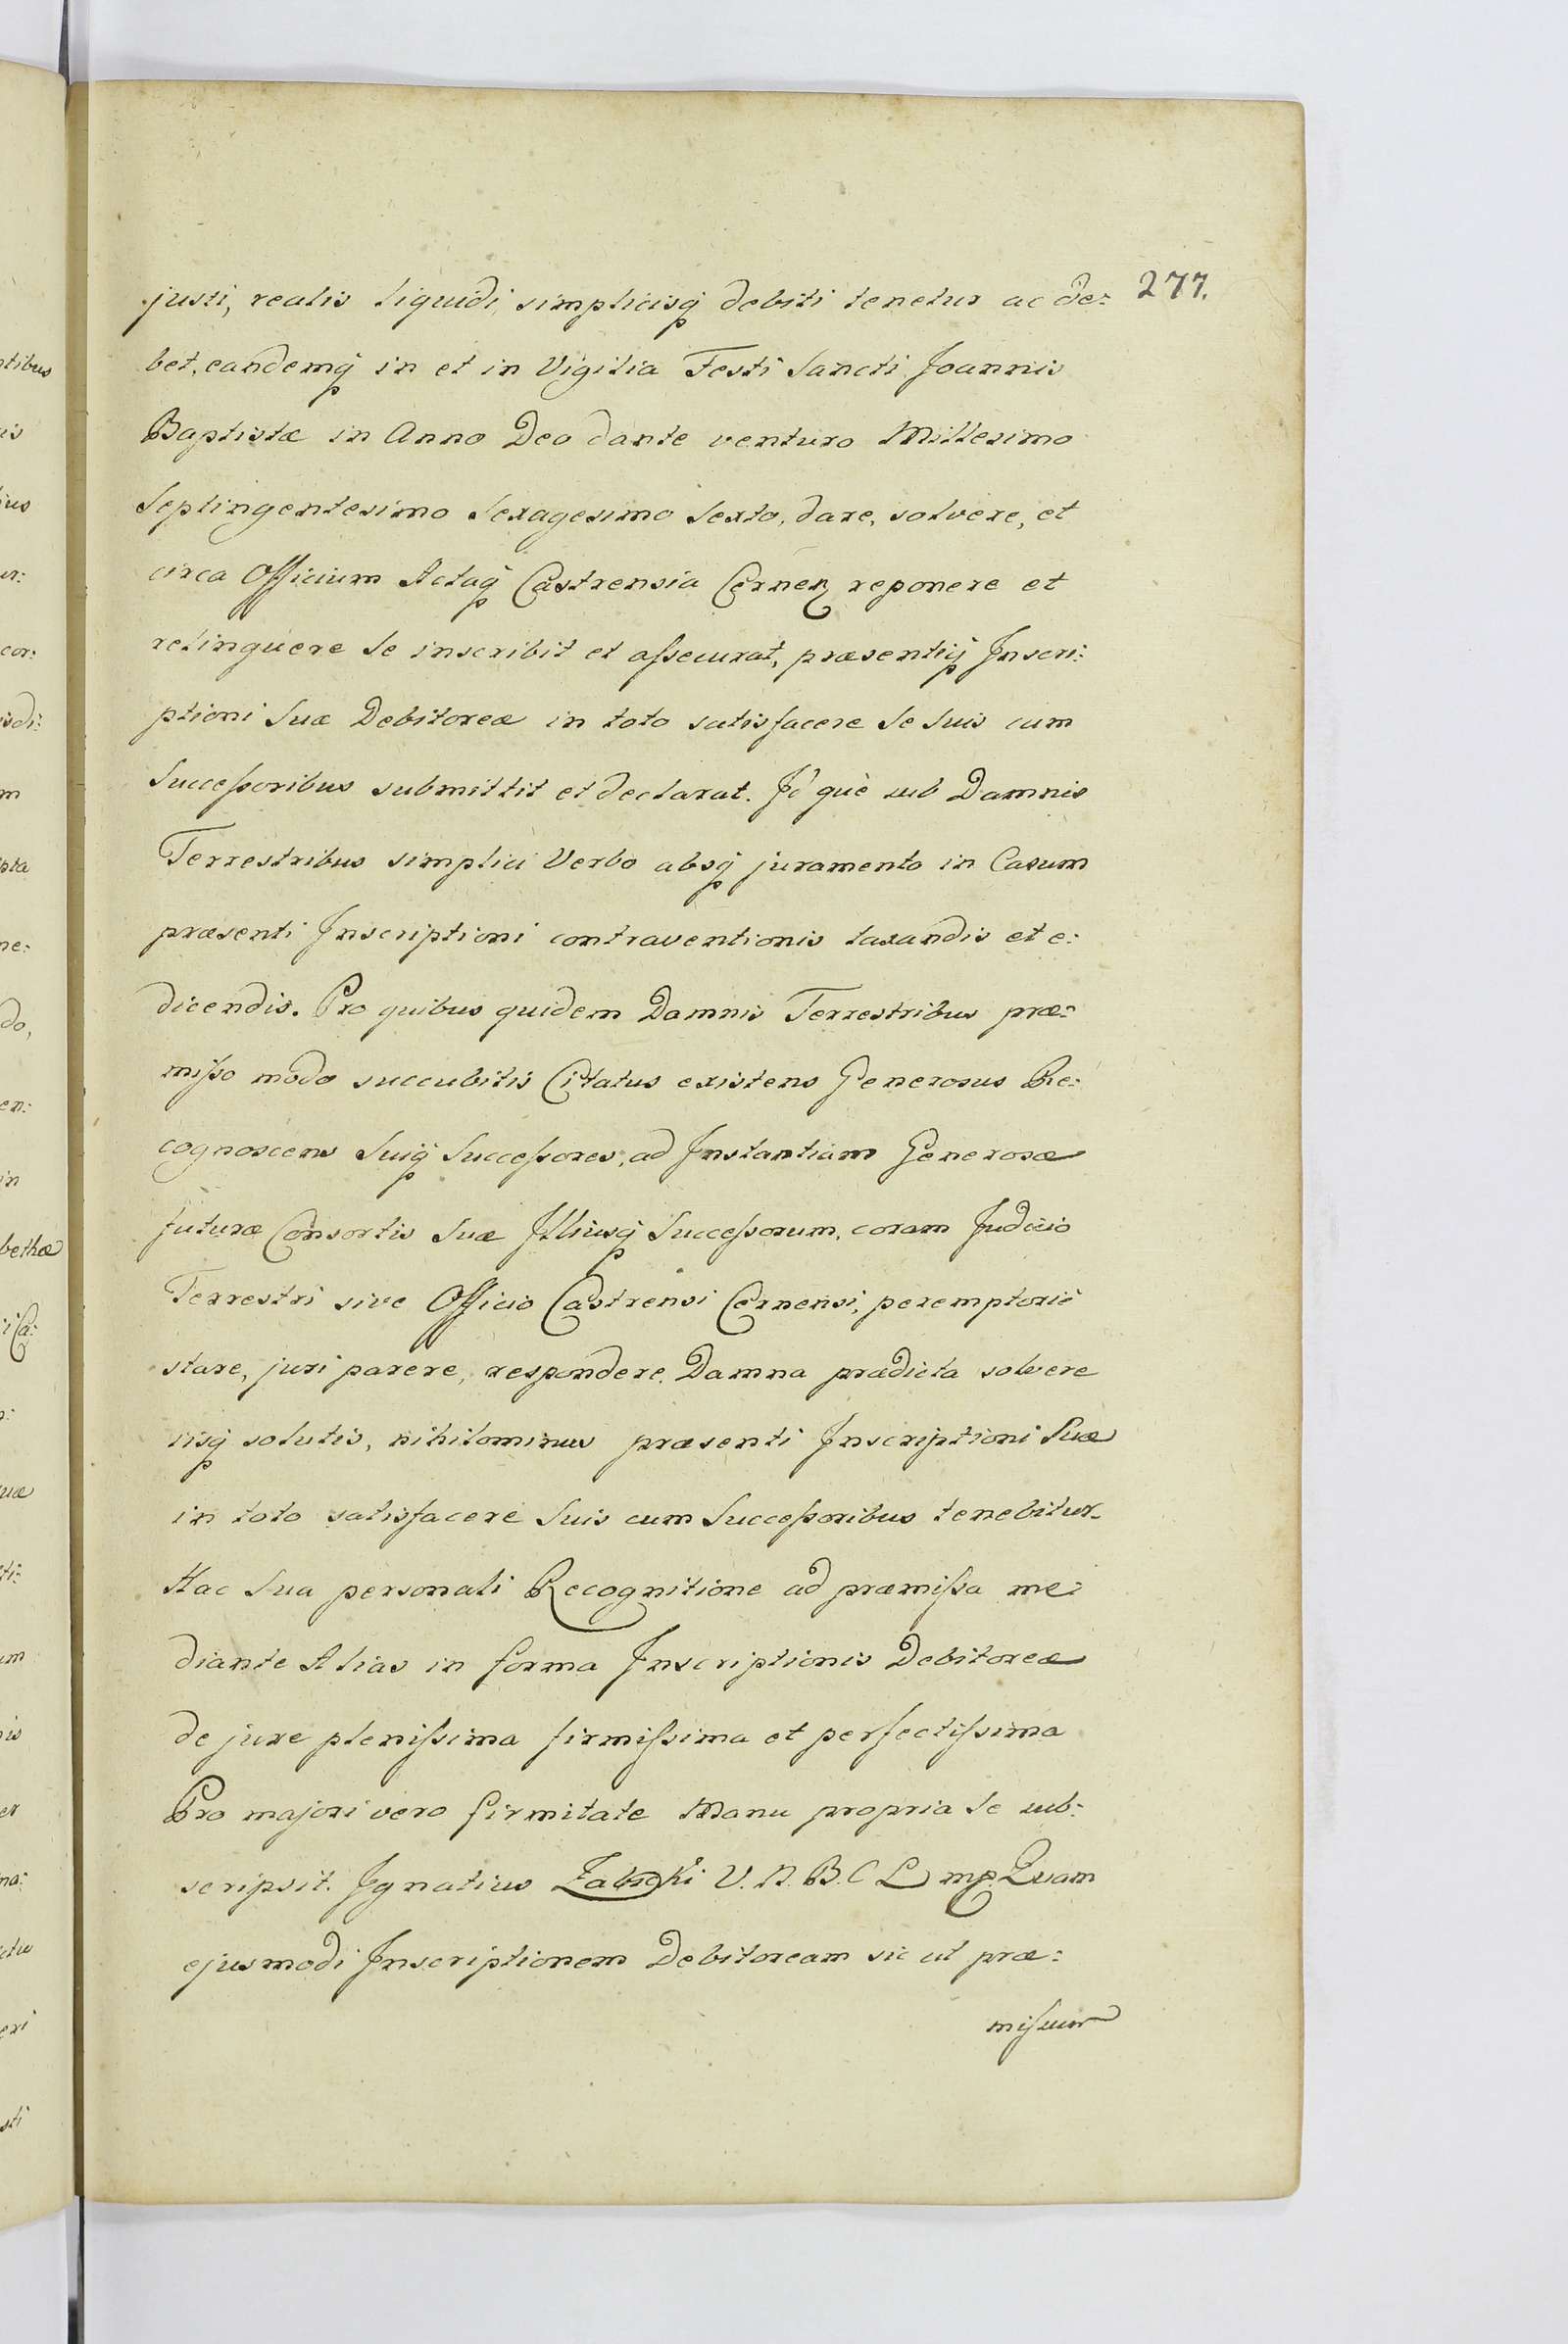 277.
justi, realis liquidi, simplicisq́ debiti tenetur ac de:
bet, eandemq́ in et in Vigilia Festi Sancti Joannis
Baptistæ in Anno Deo dante venturo Millesimo
Septingentesimo Sexagesimo Sexto, dare, solvere, et
circa Officium Actaq́ Castrensia Cernen reponere et
relinquere Se inscribit et aſsecurat, præsentiq́ Inscri:
ptioni Suæ Debitoreæ in toto satisfacere Se Suis cum
Succeſsoribus submittit et declarat. Id què sub Damnis
Terrestribus simplici Verbo absq́ juramento in Casum
præsenti Inscriptioni contraventionis taxandis et e:
dicendis. Pro quibus quidem Damnis Terrestribus præ:
miſso modo succubitis Citatus existens Generosus Re:
cognoscens Suiq́ Succeſsores, ad Instantiam Generosæ
futuræ Consortis Suæ Illiusq́ Succeſsorum, coram Judicio
Terrestri sive Officio Castrensi Cernensi, peremptoriè
stare, juri parere, respondere, Damna prædicta solvere
iisq́ solutis, nihilominus præsenti Inscriptioni Suæ
in toto satisfacere Suis cum Succeſsoribus tenebitur.
Hac Sua personali Recognitione ad præmiſsa me:
diante Alias in forma Inscriptionis Debitoreæ
de jure pleniſsima firmiſsima et perfectiſsima
Pro majori vero firmitate Manu propria Se sub:
scripsit. Ignatius Zabicki V. N. B. C L mp. Quam
ejusmodi Inscriptionem Debitoream sic ut præ:
miſsum